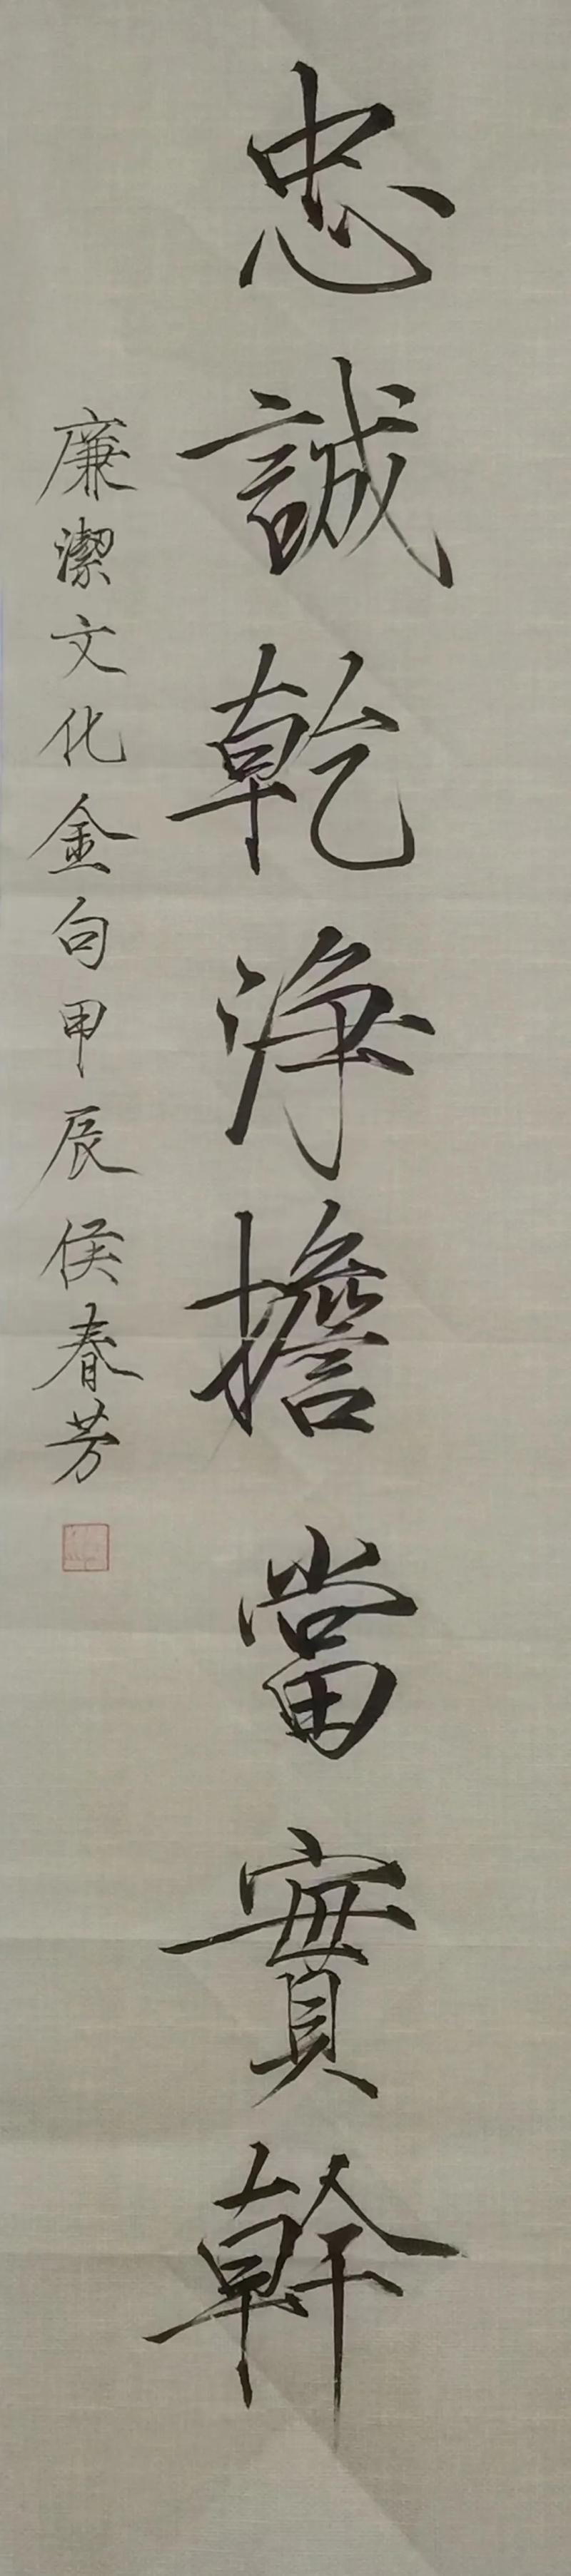 忠誠乾淨擔當實幹
廉潔文化金句甲辰侯春芳